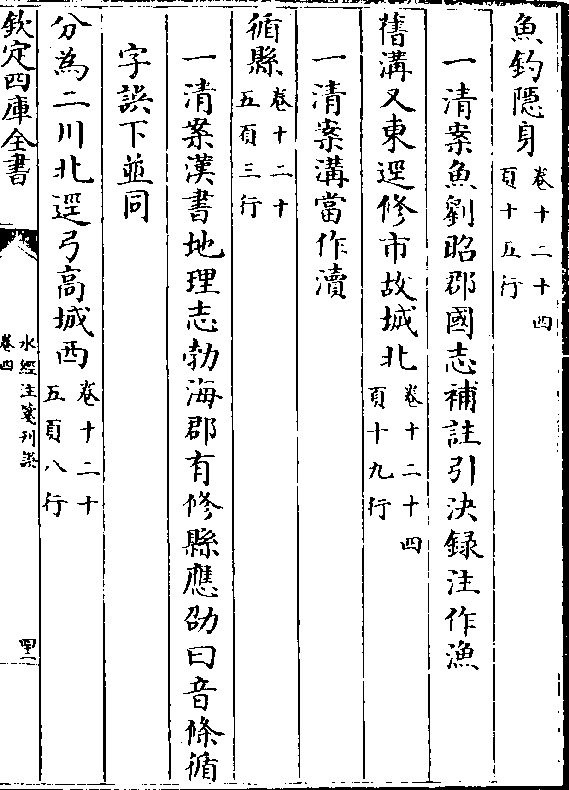 魚釣隠身卷十二十四頁十五行
一清案魚劉昭郡國志補註引決録注作漁
舊溝又東逕修市故城北卷十二十四頁十九行
一清案溝當作瀆
循縣卷十二十五頁三行
一清案漢書地理志勃海郡有修縣應劭曰音條循
字誤下並同
分為二川北逕弓高城西卷十二十五頁八行
欽定四庫全書
水經注箋刋誤
卷四